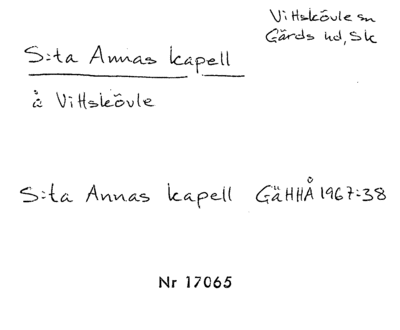 Vittskövle sn
Gärds hd, Sk
S:ta Annas kapell
å Vittskövle
S:ta Annas kapell GäHHÅ 1967:38
Nr 17065